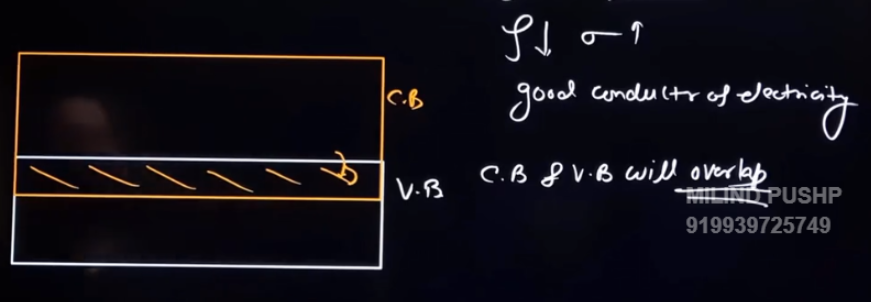 ρ↓ σ↑
good conductr of electricity
C.B
V.B
C.B & V.B will overlap
MILIND PUSHP
919939725749